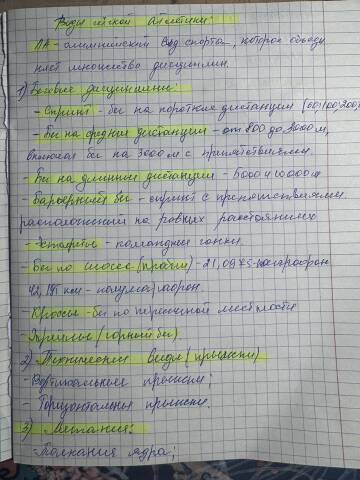 Виды лёгкой Атлетики:
ЛА - олимпийский вид спорта, которое объеди
няет множество дисциплин.
1) Беговые дисциплины:
- Спринт - бег на короткие дистанции (60, 100, 200,
- Бег на средние дистанции - от 800 до 3000 м,
включая бег на 3000 м с препятствиями.
- Бег на длинные дистанции - 5000 и 10000 м
- Барьерный бег - спринт с препятствиями
расположенный на равных расстояниях
- Эстафеты - командные гонки.
- Бег по шоссе (пробег) - 21,0975 -
42,195 км - полумарафон.
- Кроссы - бег по пересечной местности
- Трейлы (горный бег).
2) Технические виды (прыжки)
- Вертикальные прыжки;
Горизонтальные прыжки.
3) Метания:
- Толкания ядра;